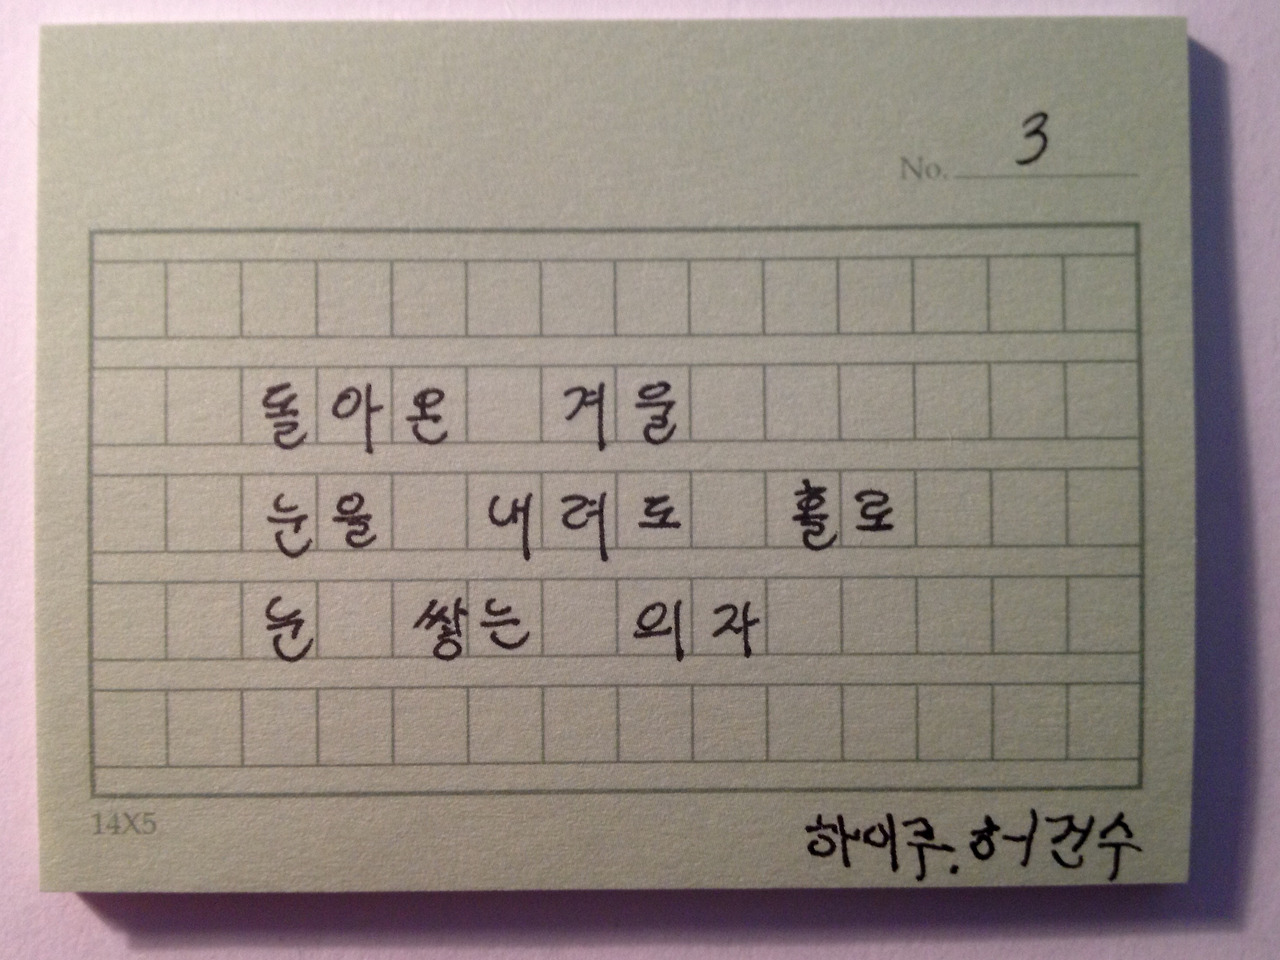 No. 3
돌아온 겨울
눈을 내려도 홀로
눈 쌓는 의자
14X5
하이쿠. 허건수